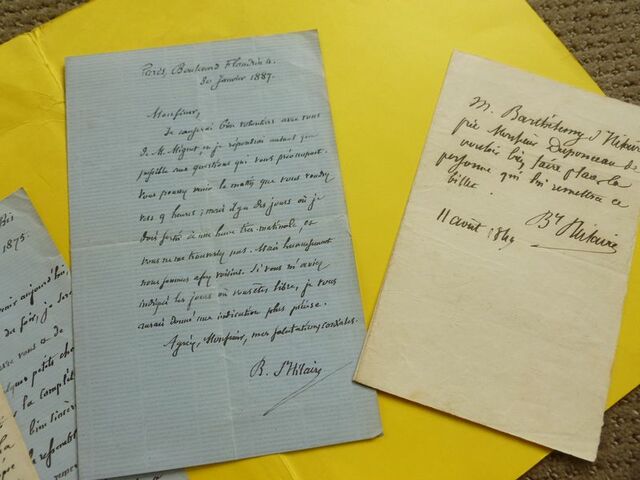 Paris, Boulevard Flandrin 4.
30 Janvier 1887.
Monsieur,
Je causerai bien volontiers avec vous
de M. Mignet, et je répondrai autant que
possible aux questions qui vous préoccupent.
Vous pouvez venir le matin que vous voudrez
vers 9 heures; mais il y a des jours où je
dois sortir à une heure très matinale, et
vous ne me trouveriez pas. Mais heureusement
nous sommes assez voisins. Si vous m'aviez
indiqué les jours où vous êtes libre, je vous
aurais donné une indication plus précise.
Agréez, Monsieur, mes salutations cordiales.
B. St Hilaire
M. Barthélemy St Hilaire
prie Monsieur Duponceau de
vouloir bien faire placer la
personne qui lui remettra ce
billet.
11 août 1849
By St Hilaire
Bis
1875.
aujourd'hui,
du soir, je
vous a de
petits
la
bien